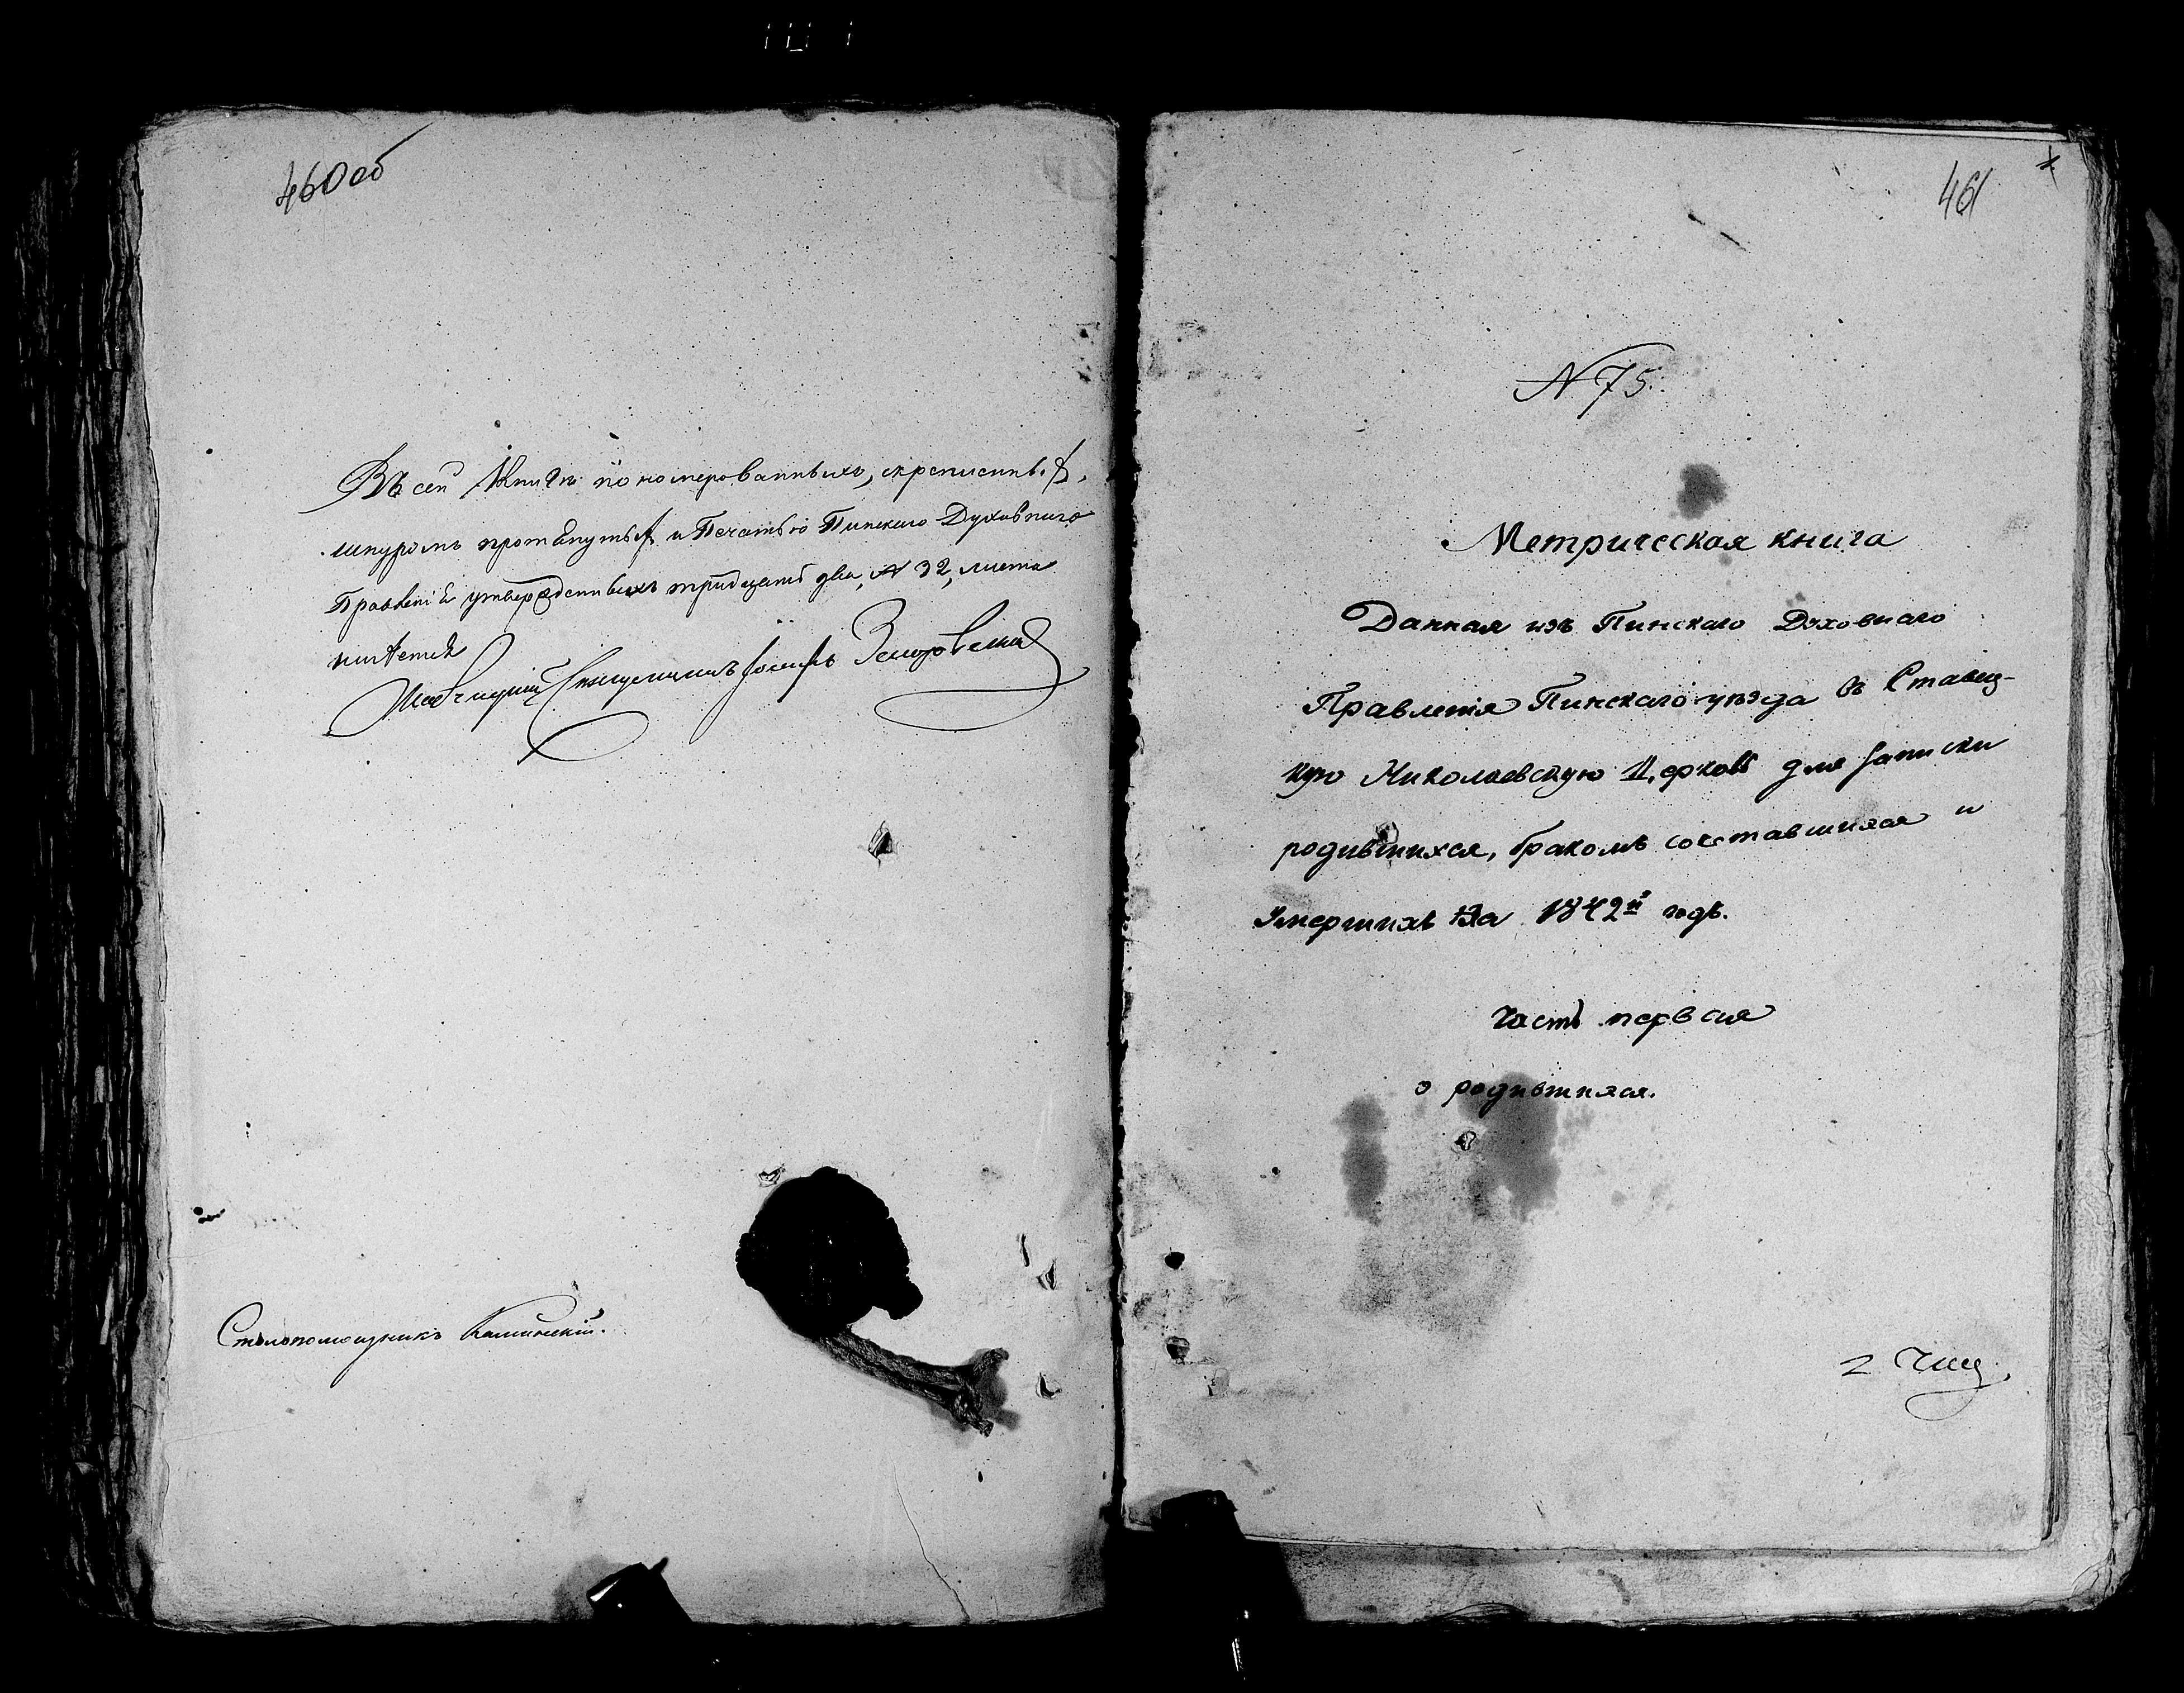 460об
Въ сей Книгѣ пономерованныхъ, скрепленныхъ,
шнуромъ протянутыхъ и Печатью Пинскаго Духовнаго
Правленія утвержденныхъ тридцать два, № 32, листа
имѣется
Священникъ Іосифъ
Столопомощникъ Калинскій.
461
1
N 75.
Метрическая книга
Данная изъ Пинскаго Духовнаго
Правленія Пинскаго уѣзда въ Ставиц-
кую Николаевскую Церковь для записки
родившихся, бракомъ сочетавшихся и
Умершихъ На 1842й годъ.
Часть первая
о родившихся.